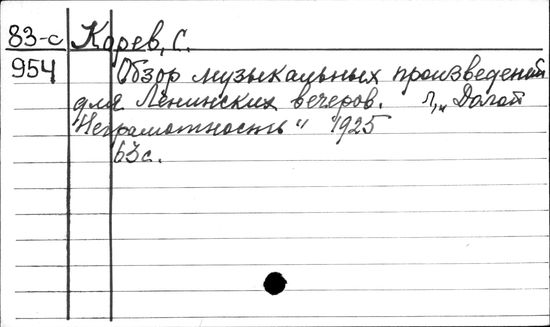 83-с Корев, С.
954 Обзор музыкальных произведений
для Ленинских вечеров. Л, „Долой
Неграмотность" 1925
63с.